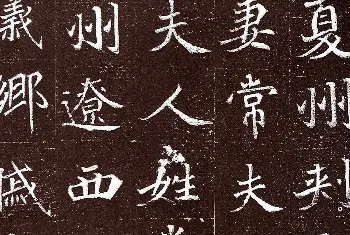 夏州刾
妻常夫
夫人姓
州遼西
義鄉戚